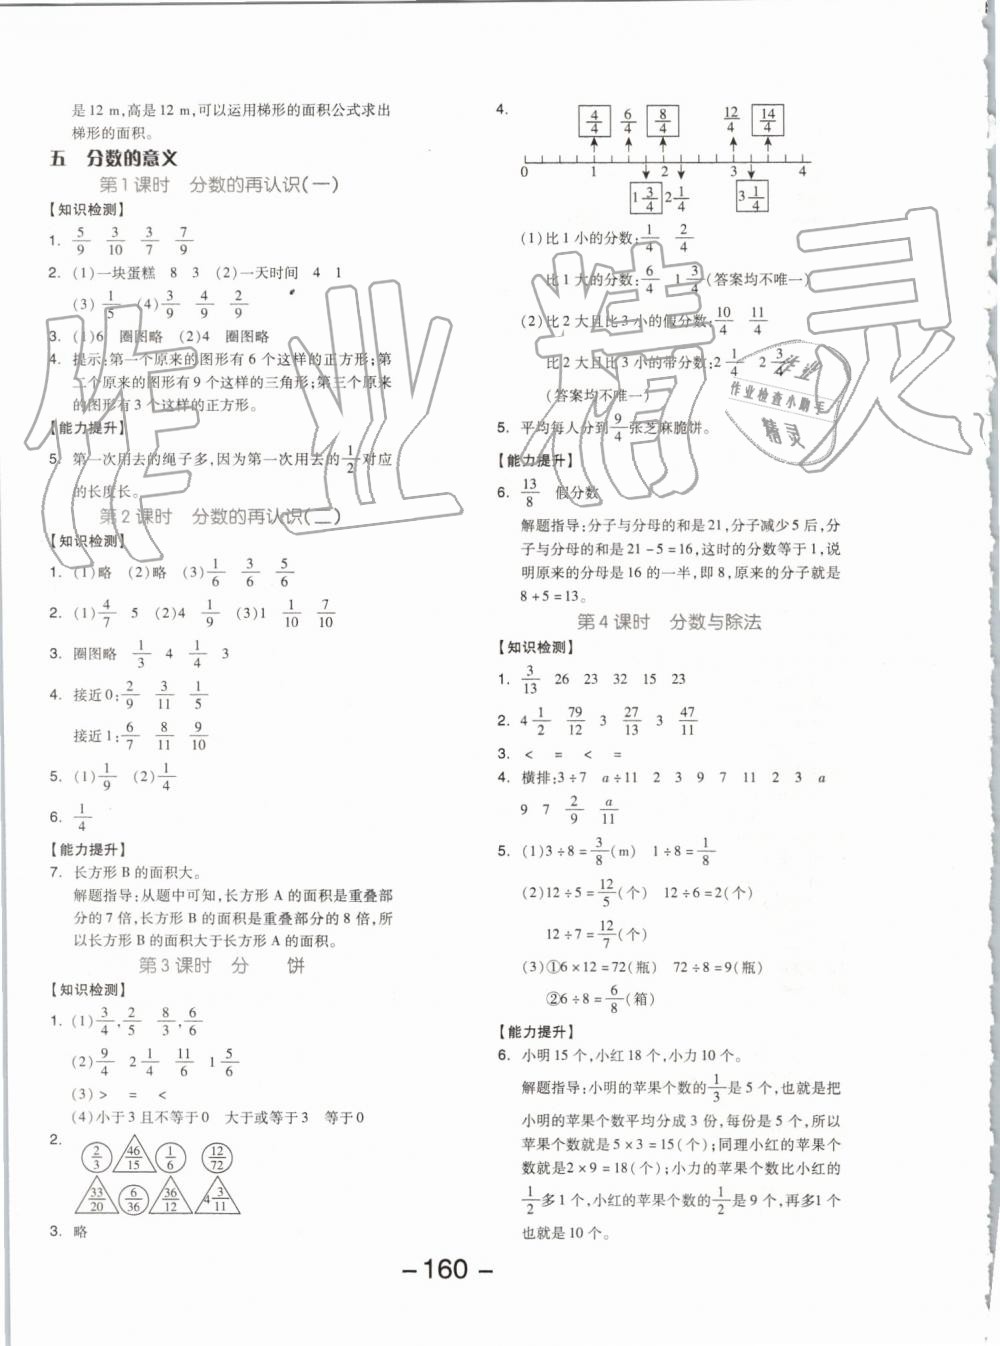 是12 m,高是12 m,可以运用梯形的面积公式求出
梯形的面积。
五 分数的意义
第1课时 分数的再认识(一)
【知识检测】
1. 5/9 3/10 3/7 7/9
2. (1)一块蛋糕 8 3 (2)一天时间 4 1
(3) 1/5 (4) 3/9 4/9 2/9
3. (1)6 圈图略 (2)4 圈图略
4. 提示:第一个原来的图形有6个这样的正方形;第
二个原来的图形有9个这样的三角形;第三个原来
的图形有3个这样的正方形。
【能力提升】
5. 第一次用去的绳子多,因为第一次用去的1/2对应
的长度长。
第2课时 分数的再认识(二)
【知识检测】
1. (1)略 (2)略 (3) 1/6 3/6 5/6
2. (1) 4/7 5 (2)4 1/9 (3)1 1/10 7/10
3. 圈图略 1/3 4 1/4 3
4. 接近0: 2/9 3/11 1/5
接近1: 6/7 8/11 9/10
5. (1) 1/9 (2) 1/4
6. 1/4
【能力提升】
7. 长方形B的面积大。
解题指导:从题中可知,长方形A的面积是重叠部
分的7倍,长方形B的面积是重叠部分的8倍,所
以长方形B的面积大于长方形A的面积。
第3课时 分 饼
【知识检测】
1. (1) 3/4, 2/5 8/3, 6/6
(2) 9/4 2 1/4 11/6 1 5/6
(3) > = <
(4)小于3且不等于0 大于或等于3 等于0
2. 2/3 46/15 1/6 12/72
33/20 6/36 36/12 4 3/11
3. 略
4. 4/4 6/4 8/4 12/4 14/4
0 1 2 3 4
1 3/4 2 1/4 3 1/4
(1)比1小的分数: 1/4 2/4
比1大的分数: 6/4 1 3/4 (答案均不唯一)
(2)比2大且比3小的假分数: 10/4 11/4
比2大且比3小的带分数: 2 1/4 2 3/4
(答案均不唯一)
5. 平均每人分到9/4张芝麻脆饼。
【能力提升】
6. 13/8 假分数
解题指导:分子与分母的和是21,分子减少5后,分
子与分母的和是21-5=16,这时的分数等于1,说
明原来的分母是16的一半,即8,原来的分子就是
8+5=13。
第4课时 分数与除法
【知识检测】
1. 3/13 26 23 32 15 23
2. 4 1/2 79/12 3 27/13 3 47/11
3. < = < =
4. 横排:3÷7 a÷11 2 3 9 7 11 2 3 a
9 7 2/9 a/11
5. (1)3÷8=3/8(m) 1÷8=1/8
(2)12÷5=12/5(个) 12÷6=2(个)
12÷7=12/7(个)
(3)①6×12=72(瓶) 72÷8=9(瓶)
②6÷8=6/8(箱)
【能力提升】
6. 小明15个,小红18个,小力10个。
解题指导:小明的苹果个数的1/3是5个,也就是把
小明的苹果个数平均分成3份,每份是5个,所以
苹果个数就是5×3=15(个);同理小红的苹果个
数就是2×9=18(个);小力的苹果个数比小红的
1/2多1个,小红的苹果个数的1/2是9个,再多1个
也就是10个。
作业精灵
作业
作业检查小助手
精灵
- 160 -